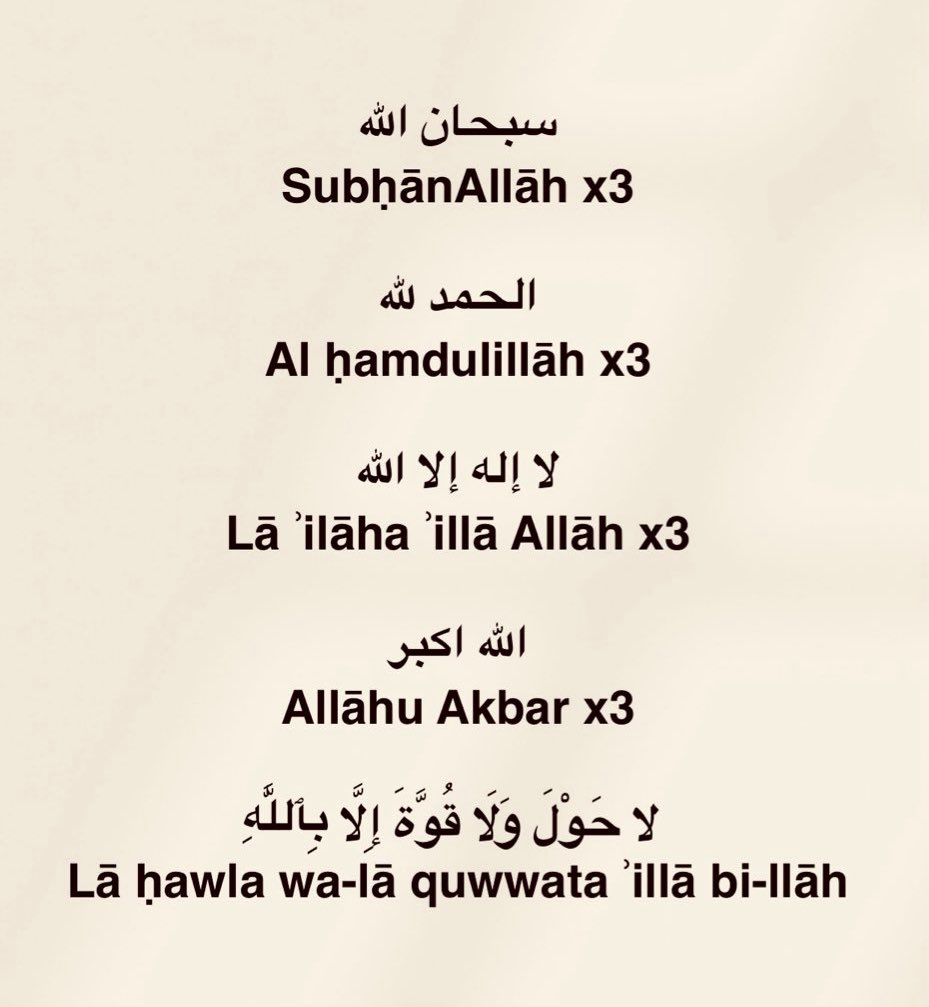 سبحان الله
SubḥānAllāh x3
الحمد لله
Al ḥamdulillāh x3
لا إله إلا الله
Lā ʾilāha ʾillā Allāh x3
الله اكبر
Allāhu Akbar x3
لا حَوْلَ وَلَا قُوَّةَ إِلَّا بِٱللَّهِ
Lā ḥawla wa-lā quwwata ʾillā bi-llāh